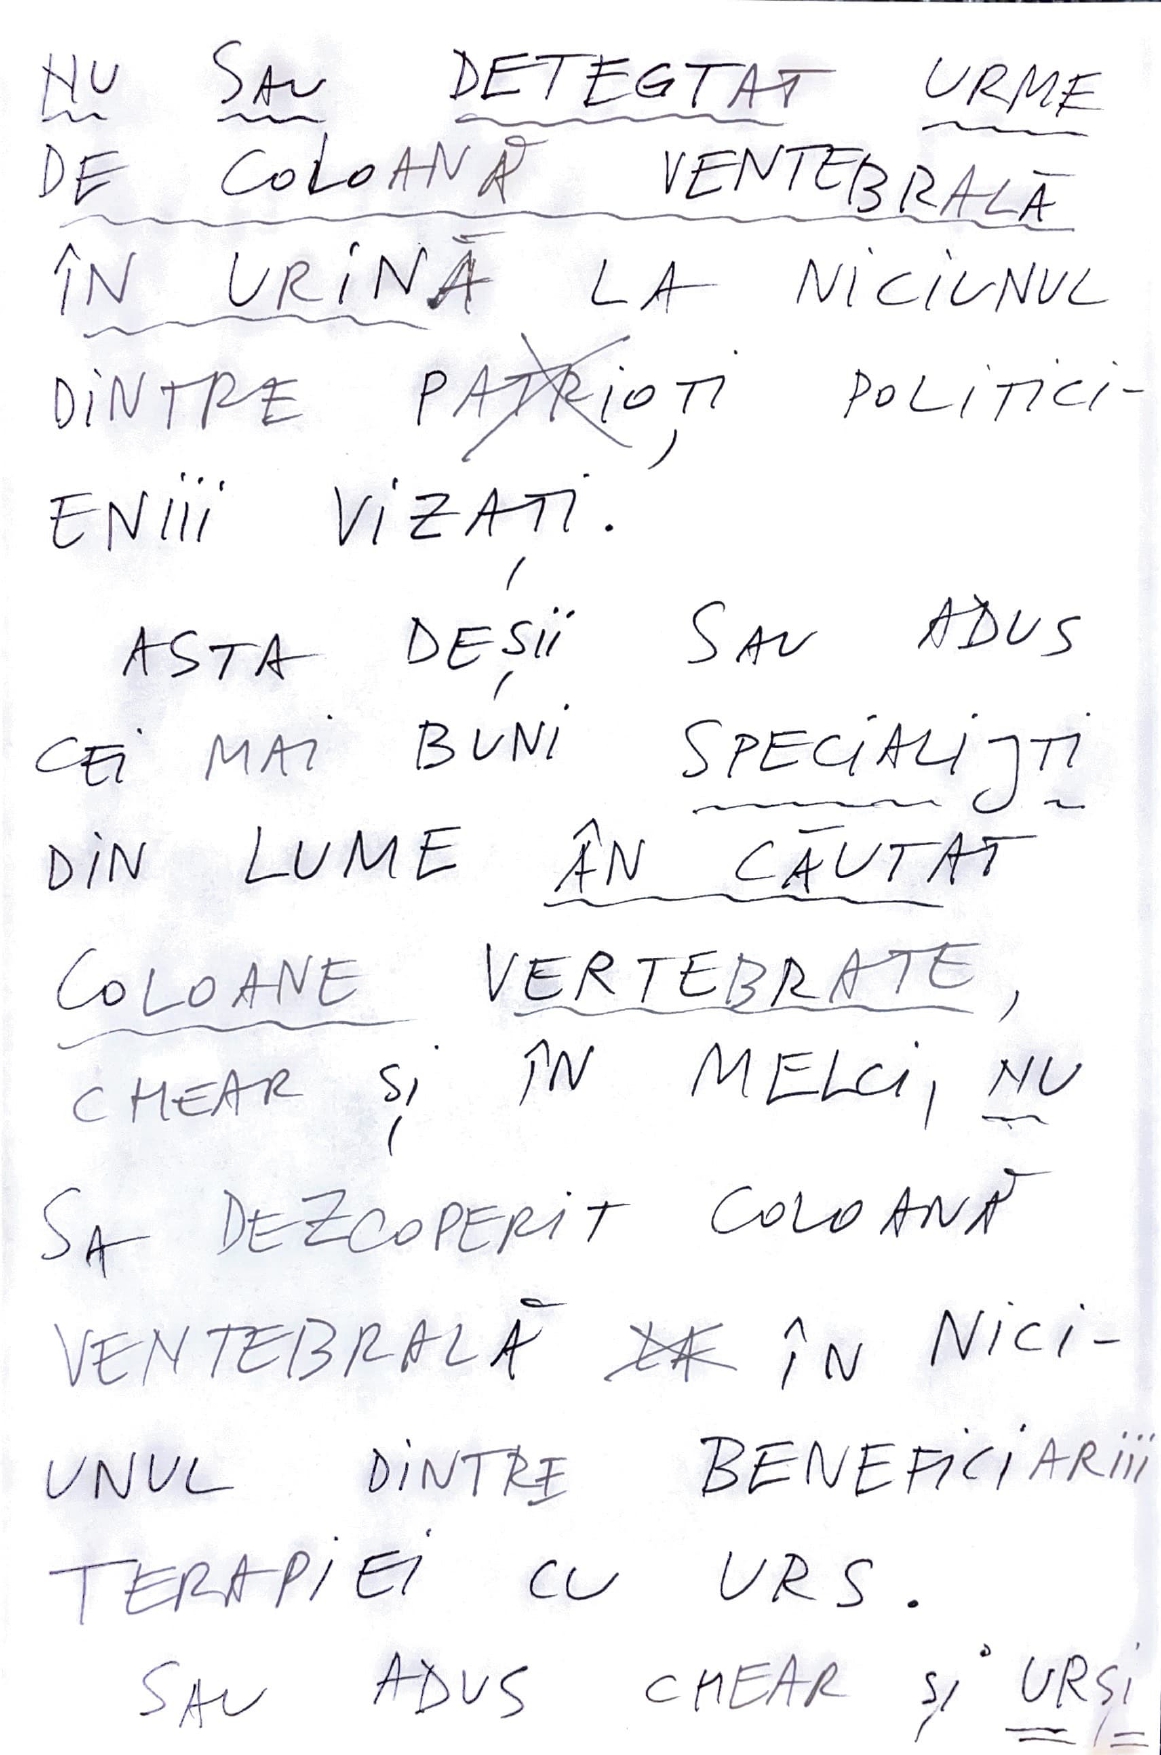 NU SAU DETEGTAT URME
DE COLOANĂ VENTEBRALĂ
ÎN URINĂ LA NICIUNUL
DINTRE PATRIOȚI POLITICI-
ENIII VIZAȚI.
ASTA DEȘII SAU ADUS
CEI MAI BUNI SPECIALIȘTI
DIN LUME ÂN CĂUTAT
COLOANE VERTEBRATE,
CHEAR ȘI ÎN MELCI, NU
SA DEZCOPERIT COLOANĂ
VENTEBRALĂ LA ÎN NICI-
UNUL DINTRE BENEFICIARIII
TERAPIEI CU URS.
SAU ADUS CHEAR ȘI URȘI